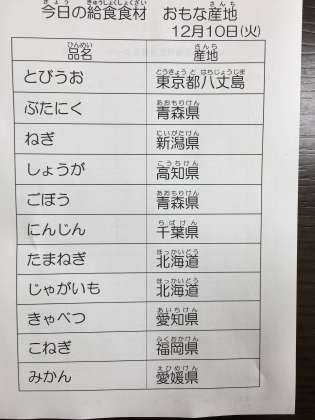 今日の給食食材　おもな産地
12月10日(火)
品名 産地
とびうお 東京都八丈島
ぶたにく 青森県
ねぎ 新潟県
しょうが 高知県
ごぼう 青森県
にんじん 千葉県
たまねぎ 北海道
じゃがいも 北海道
きゃべつ 愛知県
こねぎ 福岡県
みかん 愛媛県